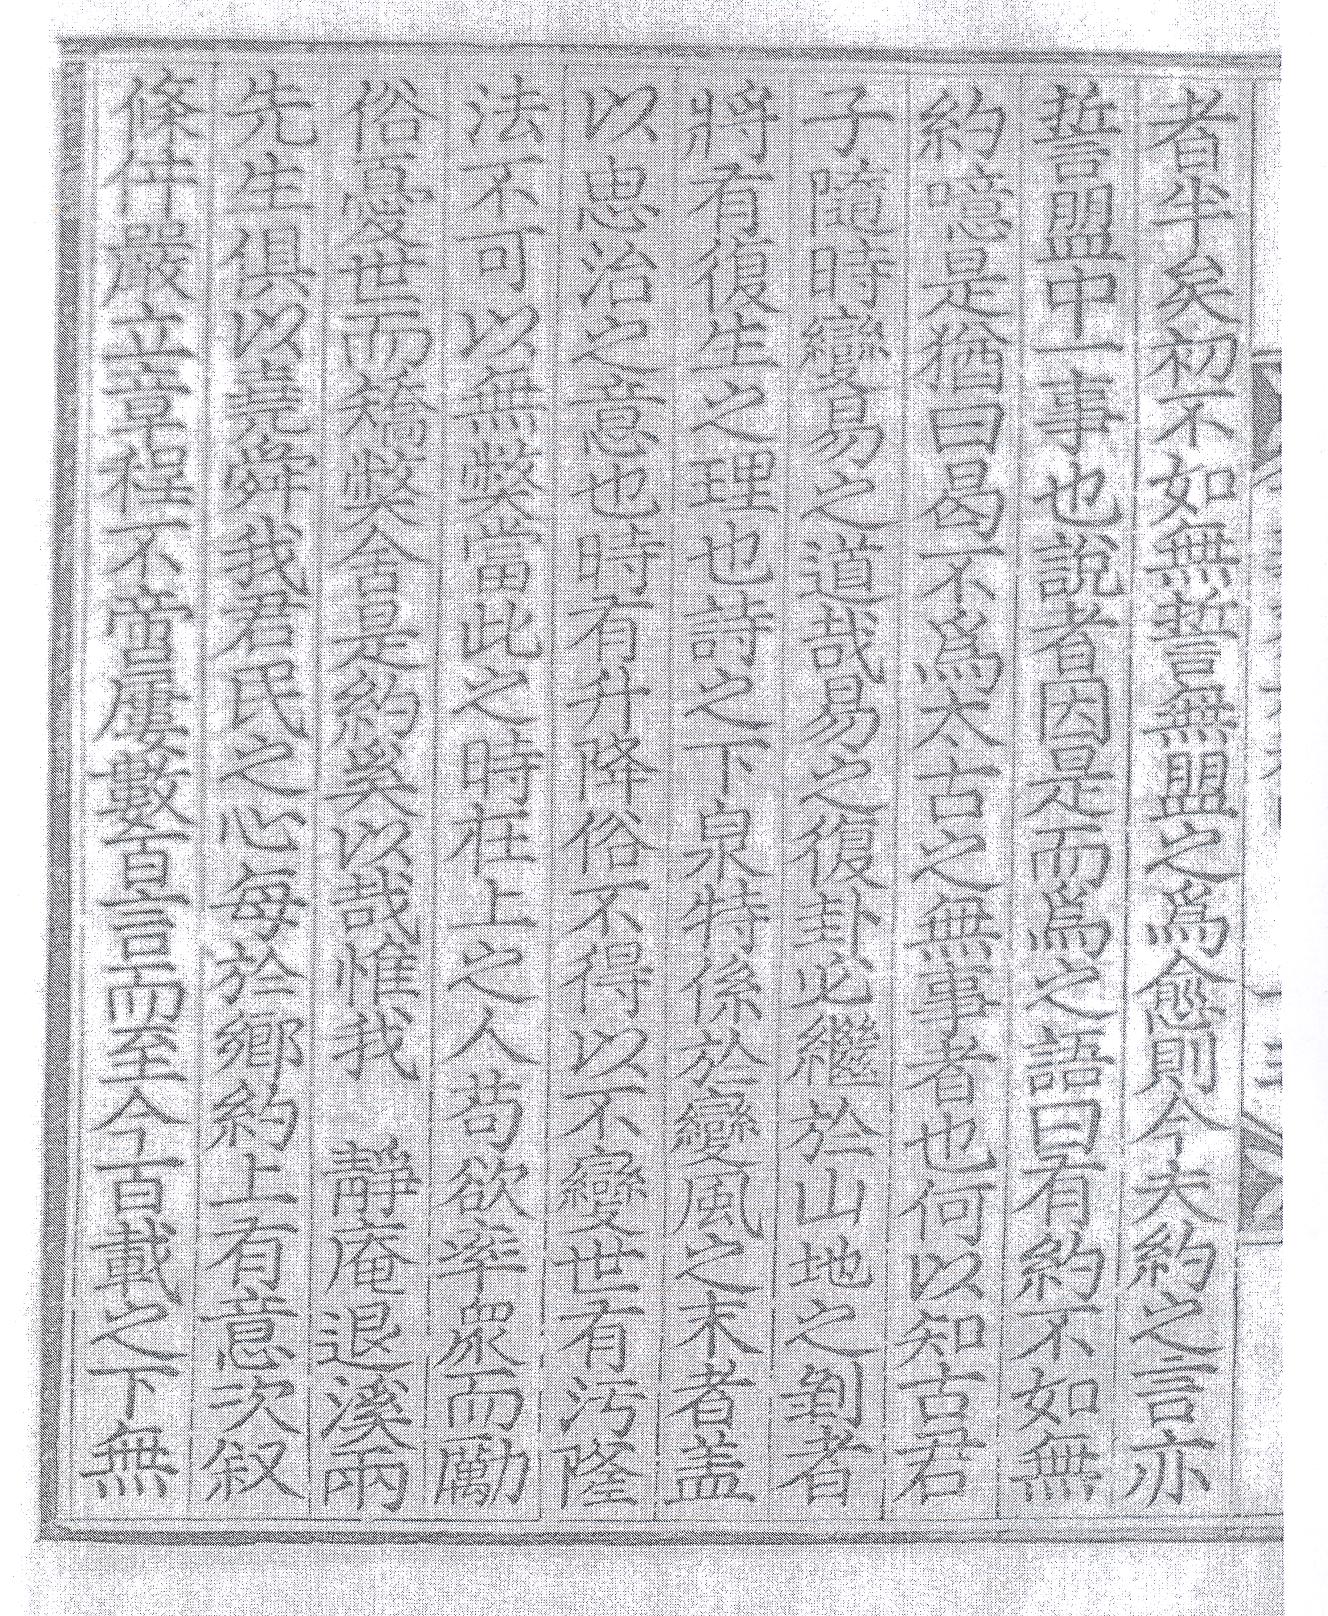 者半矣初不如無誓無盟之爲愈則今夫約之言亦
誓盟中一事也說者因是而爲之語曰有約不如無
約噫是猶曰曷不爲太古之無事者也何以知古君
子隨時變易之道哉易之復卦必繼於山地之剝者
將有復生之理也詩之下泉特係於變風之末者盖
以思治之意也時有升降俗不得以不變世有汚隆
法不可以無弊當此之時在上之人苟欲率衆而勵
俗憂世而矯弊舍是約奚以哉惟我 靜庵退溪兩
先生俱以堯舜我君民之心每於鄕約上有意次叙
條件嚴立章程不啻屢數百言而至今百載之下無